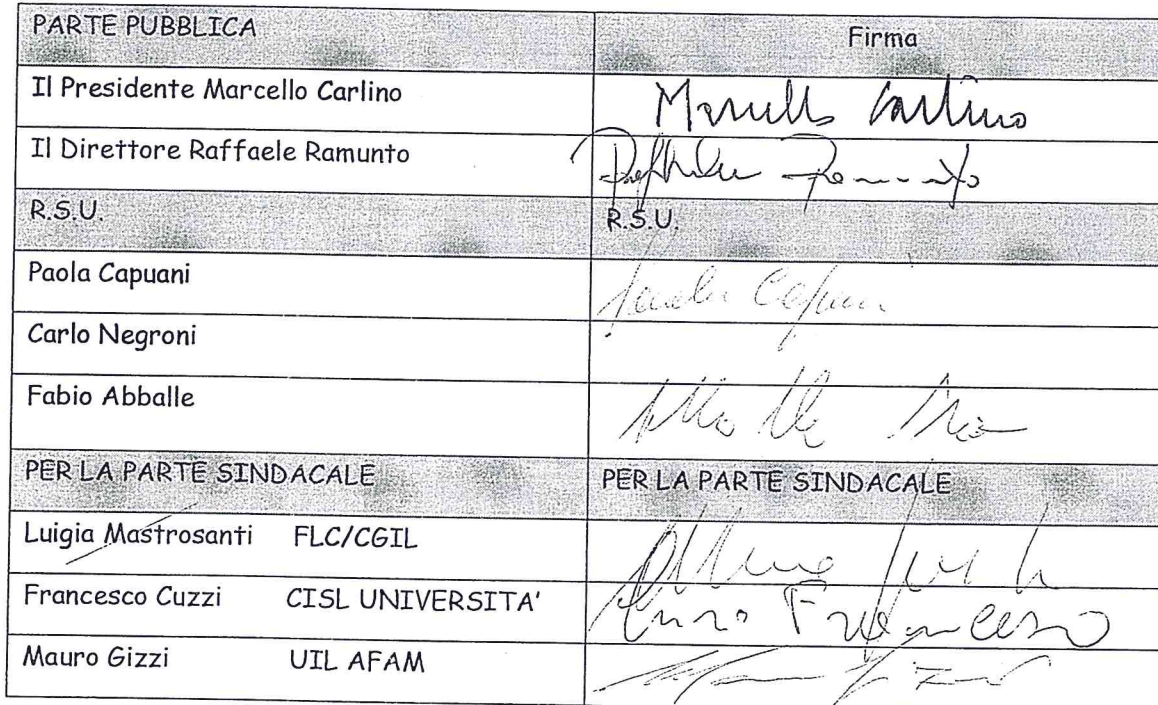 PARTE PUBBLICA Firma
Il Presidente Marcello Carlino Marcello Carlino
Il Direttore Raffaele Ramunto Raffaele Ramunto
R.S.U. R.S.U.
Paola Capuani Paola Capuani
Carlo Negroni
Fabio Abballe
PER LA PARTE SINDACALE PER LA PARTE SINDACALE
Luigia Mastrosanti FLC/CGIL
Francesco Cuzzi CISL UNIVERSITA' Francesco
Mauro Gizzi UIL AFAM